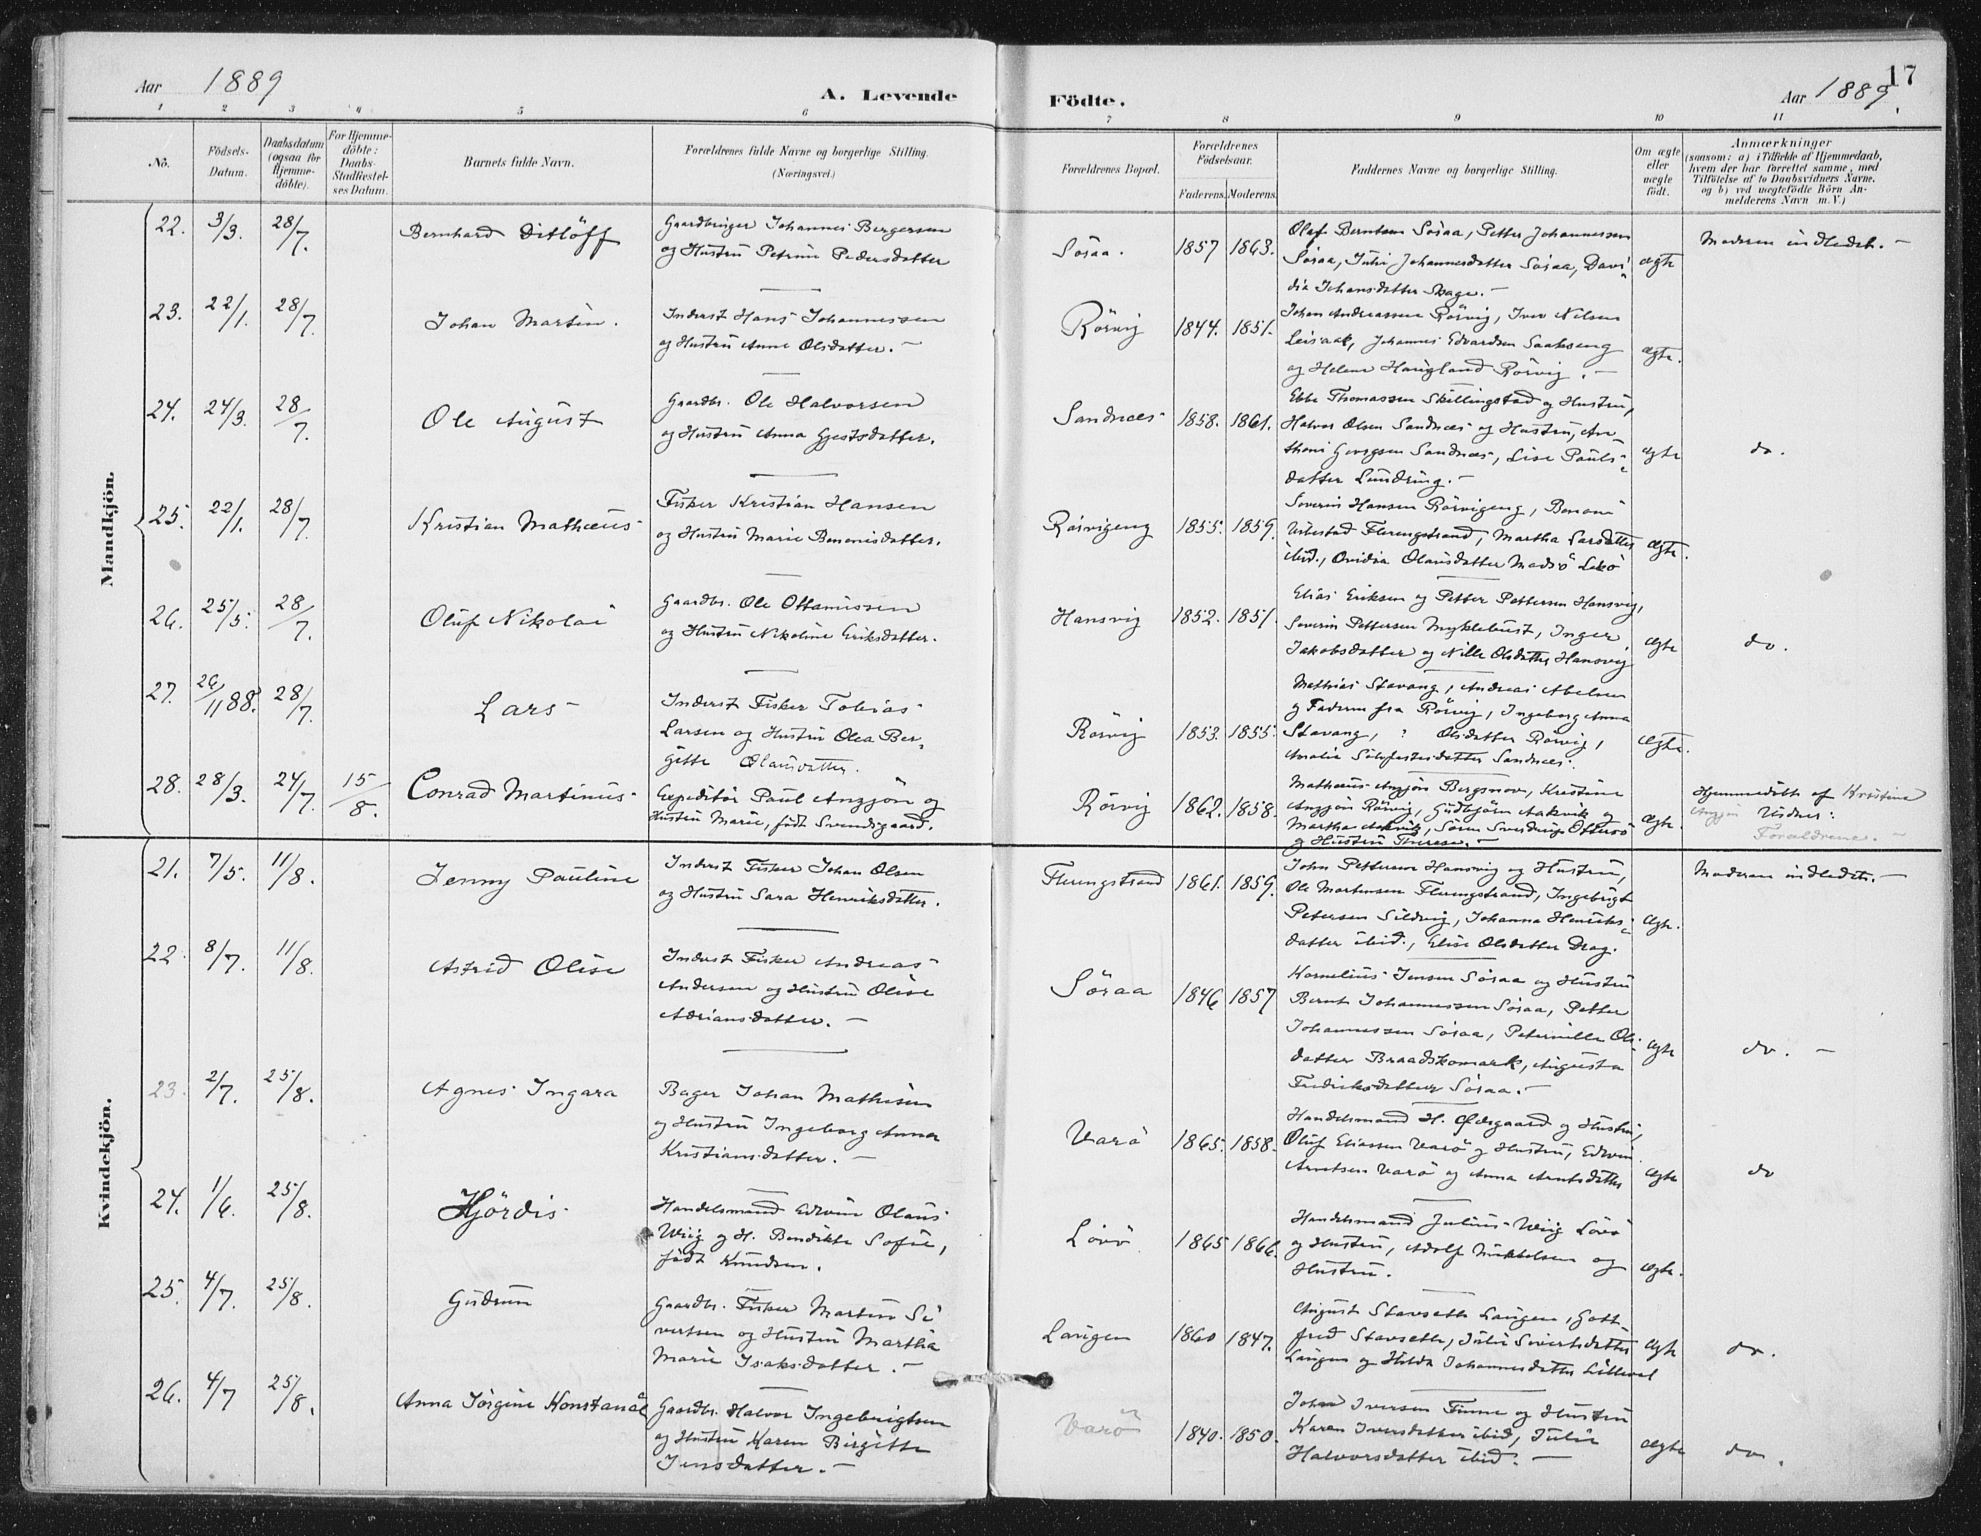 Aar 1889
A. Levende
Födte.
Aar 1889.
17
1 2 3 4 5 6 7 8 9 10 11
No.
Födsels-Datum.
Daabsdatum (ogsaa for Hjemmedöbte).
For Hjemmedöbte: Daabs-Stadfæstelses Datum.
Barnets fulde Navn.
Forældrenes fulde Navne og borgerlige Stilling. (Næringsvei.)
Forældrenes Bopæl.
Forældrenes Födselsaar.
Faderens. Moderens.
Faddernes Navne og borgerlige Stilling.
Om ægte eller uægte født.
Anmærkninger
(saasom: a) i Tilfælde af Hjemmedaab, hvem der har forrettet samme, med Tilföielse af to Daabsvidners Navne, og b) ved uægtefödte Börn Anmelderens Navn m. V.)
Mandkjön.
22. 3/3. 28/7. Bernhard Ditlöff
Gaardbruger Johannes Bergersen
og Hustru Petrine Pedersdatter
Söraa. 1857 1863.
Olaf Berntsen Söraa, Petter Johannessen
Söraa, Julie Johannesdatter Söraa, Davi
dia Johansdatter Skage. —
ægte
Moderen indledet. —
23. 22/1. 28/7. Johan Martin.
Inderst Hans Johannessen
og Hustru Anne Olsdatter. —
Rörvig 1844. 1851.
Johan Andreassen Rörvig, Iver Nilsen
Leisaak, Johannes Edvardsen Saakseng
og Helene Haugland Rörvig. —
ægte.
24. 24/3. 28/7. Ole August
Gaardbr. Ole Halvorsen
og Hustru Anna Gjertsdatter.
Sandnæs 1858. 1861.
Ebbe Thomassen Skillingstad og Hustru,
Halvor Olsen Sandnæs og Hustru, An
thoni Georgsen Sandnæs, Lise Pauls
datter Lundring. —
ægte
do.
25. 22/1. 28/7. Kristian Mathæus
Fisker Kristian Hansen
og Hustru Marie Benonisdatter.
Rörvigeng 1855. 1859.
Severin Hansen Rörvigeng, Benoni
Flerengstrand, Martha Larsdatter
ibid., Ovidia Olausdatter Madsö Lekö
ægte.
26. 25/5. 28/7. Oluf Nikolai
Gaardbr. Ole Ottamissen
og Hustru Nikoline Eriksdatter.
Hansvig 1852. 1851.
Elias Eriksen og Petter Pettersen Hansvig,
Severin Pettersen Myklebust, Inger
Jakobsdatter og Nille Olsdatter Hansvig
ægte
do.
27. 26/11 88. 28/7. Lars
Inderst Fisker Tobias
Larsen og Hustru Olea Ber-
gitte Olausdatter.
Rörvig 1853. 1855.
Mathias Stavang, Andreas Abelsen
og Faderen fra Rörvig, Ingeborg Anna
Stavang, ? Olsdatter Rörvig,
Amalie Sölvfestesdatter Sandnæs.
ægte.
28. 28/3. 24/7. 15/8. Conrad Martinus
Expeditör Paul Angjön og
Hustru Marie, födt Svendsgaard.
Rörvig 1862. 1858.
Mathæus Angjön Bergsnov, Kristine
Angjön Rörvig, Gudbjörn Aakvik og
Martha Aakvik, Sören Ottersö
og Hustru Therese. —
ægte.
Hjemmedöbt af Kristine
Angjön Vidner:
Forældrene. —
Kvindekjön.
21. 7/5. 11/8. Jenny Pauline
Inderst Fisker Johan Olsen
og Hustru Sara Henriksdatter.
Flerengstrand 1861. 1859.
John Pettersen Hansvig og Hustru,
Ole Mortensen Flerengstrand, Ingebrigt
Petersen Sildvig, Johanna Henriks
datter ibid., Elise Olsdatter Drag.
ægte.
Moderen indledet. —
22. 8/7. 11/8. Astrid Olise
Inderst Fisker Andreas
Andersen og Hustru Olise
Adriansdatter. —
Söraa 1846 1857
Kornelius Jensen Söraa og Hustru
Bernt Johannessen Söraa, Petter
Johannessen Söraa, Peternille Ols
datter Braadskomark, Augusta
Fredriksdatter Söraa. —
ægte
do. —
23. 2/7. 25/8. Agnes Ingara
Bager Johan Mathisen
og Hustru Ingeborg Anna
Kristiansdatter. —
Varö 1865. 1858.
Handelsmand H. Ödegaard og Hustru,
Oluf Eliassen Varö og Hustru, Edvin
Arntsen Varö og Anna Arntsdatter
ægte
do
24. 1/6. 25/8. Hjördis
Handelsmand Edvin Olaus
Wiig og H. Bendikte Sofie,
födt Knudsen.
Lövö 1865 1866.
Handelsmand Julius Wiig Lövö
og Hustru, Adolf Mikkelsen og
Hustru.
ægte.
25. 4/7. 25/8. Gudrun
Gaardbr. Fisker Martin Si
vertsen og Hustru Martha
Marie Isaksdatter. —
Laugen 1860 1847.
August Stavseth Laugen, Gott-
fred Stavseth, Julie Sivertsdatter
Laugen og Hilda Johannesdatter Lilleval
ægte
do.
26. 4/7 25/8. Anna Jörgine Konstance
Gaardbr. Halvor Ingebrigtsen
og Hustru Karen Birgitte
Jensdatter. —
Varö 1840. 1850.
Johan Iversen Finne og Hustru
Karen Iversdatter ibid, Julie
Halvorsdatter ibid. —
ægte
do.